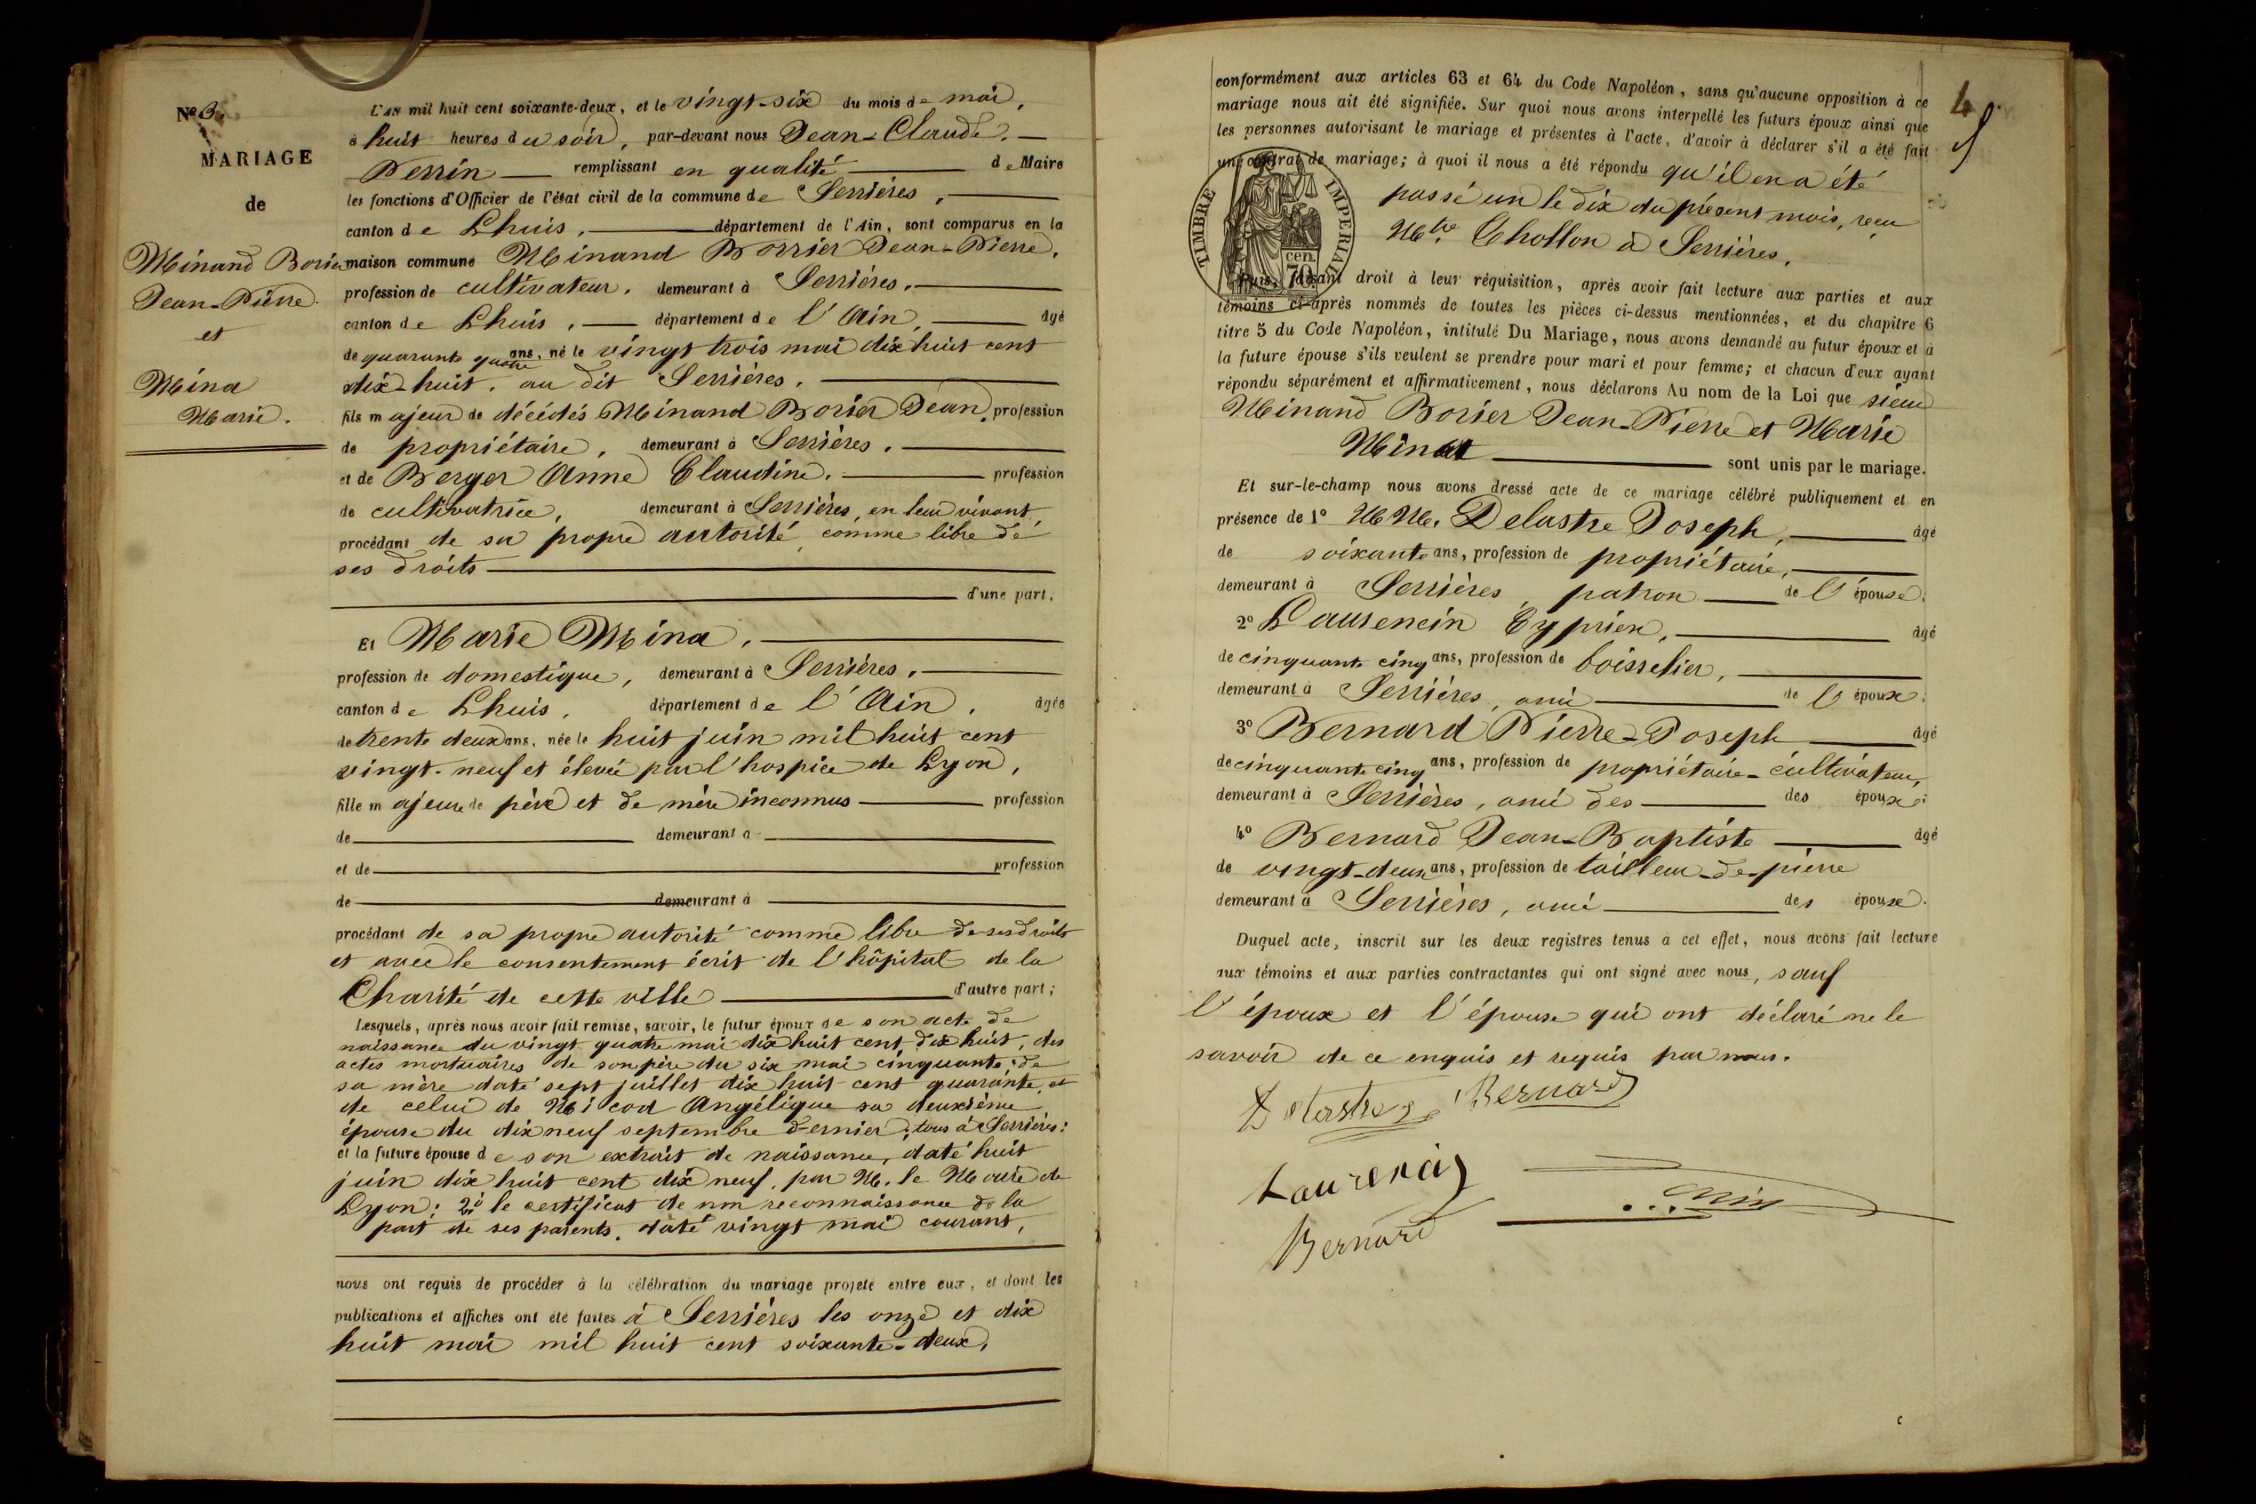 Nº 3
MARIAGE
de
Minand Borier
Jean-Pierre.
et
Mina
Marie.
L'AN mil huit cent soixante-deux, et le vingt-six du mois de mai,
à huit heures du soir, par-devant nous Jean-Claude
Perrin remplissant en qualité de Maire
les fonctions d'Officier de l'état civil de la commune de Serrières,
canton de Lhuis, département de l'Ain, sont comparus en la
maison commune Minand Borrier Jean-Pierre,
profession de cultivateur, demeurant à Serrières,
canton de Lhuis, département de l'Ain, âgé
de quarante quatre ans, né le vingt trois mai dix huit cent
dix-huit, au dit Serrières,
fils majeur de décédés Minand Borier Jean, profession
de propriétaire, demeurant à Serrières,
et de Berger Anne Claudine, profession
de cultivatrice, demeurant à Serrières, en leur vivant
procédant de sa propre autorité, comme libre de
ses droits
d'une part;
Et Marie Mina,
profession de domestique, demeurant à Serrières,
canton de Lhuis, département de l'Ain, âgée
de trente deux ans, née le huit juin mil huit cent
vingt-neuf et élevée par l'hospice de Lyon,
fille majeure de père et de mère inconnus profession
de demeurant à
et de profession
de demeurant à
procédant de sa propre autorité comme libre de ses droits
et avec le consentement écrit de l'hôpital de la
Charité de cette ville d'autre part;
Lesquels, après nous avoir fait remise, savoir, le futur époux de son acte de
naissance du vingt quatre mai dix huit cent dix huit, des
actes mortuaires de son père du six mai cinquante; de
sa mère daté sept juillet dix huit cent quarante, et
de celui de Micod Angélique sa deuxième
épouse du dix neuf septembre dernier; tous à Serrières:
et la future épouse de son extrait de naissance, daté huit
juin dix huit cent dix neuf, par M. le Maire de
Lyon; 2º le certificat de non reconnaissance de la
part de ses parents, daté vingt mai courant,
nous ont requis de procéder à la célébration du mariage projeté entre eux, et dont les
publications et affiches ont été faites à Serrières les onze et dix
huit mai mil huit cent soixante-deux,
4
conformément aux articles 63 et 64 du Code Napoléon, sans qu'aucune opposition à ce
mariage nous ait été signifiée. Sur quoi nous avons interpellé les futurs époux ainsi que
les personnes autorisant le mariage et présentes à l'acte, d'avoir à déclarer s'il a été fait
un contrat de mariage; à quoi il nous a été répondu qu'il en a été
passé un le dix du présent mois, reçu
Mtre Chollon à Serrières.
TIMBRE IMPERIAL
70 cen.
Puis, faisant droit à leur réquisition, après avoir fait lecture aux parties et aux
témoins ci-après nommés de toutes les pièces ci-dessus mentionnées, et du chapitre 6
titre 5 du Code Napoléon, intitulé Du Mariage, nous avons demandé au futur époux et à
la future épouse s'ils veulent se prendre pour mari et pour femme; et chacun d'eux ayant
répondu séparément et affirmativement, nous déclarons Au nom de la Loi que sieur
Minand Borier Jean-Pierre et Marie
Mina sont unis par le mariage.
Et sur-le-champ nous avons dressé acte de ce mariage célébré publiquement et en
présence de 1º MM. Delastre Joseph, âgé
de soixante ans, profession de propriétaire,
demeurant à Serrières, patron de l'épouse.
2º Laurencin Cyprien, âgé
de cinquante cinq ans, profession de boisselier,
demeurant à Serrières, ami de l'époux;
3º Bernard Pierre-Joseph âgé
de cinquante cinq ans, profession de propriétaire-cultivateur,
demeurant à Serrières, ami des des époux;
4º Bernard Jean-Baptiste âgé
de vingt-deux ans, profession de tailleur-de-pierre
demeurant à Serrières, ami des époux.
Duquel acte, inscrit sur les deux registres tenus à cet effet, nous avons fait lecture
aux témoins et aux parties contractantes qui ont signé avec nous, sauf
l'époux et l'épouse qui ont déclaré ne le
savoir de ce enquis et requis par nous.
Delastre j Bernard
Laurencin
Bernard